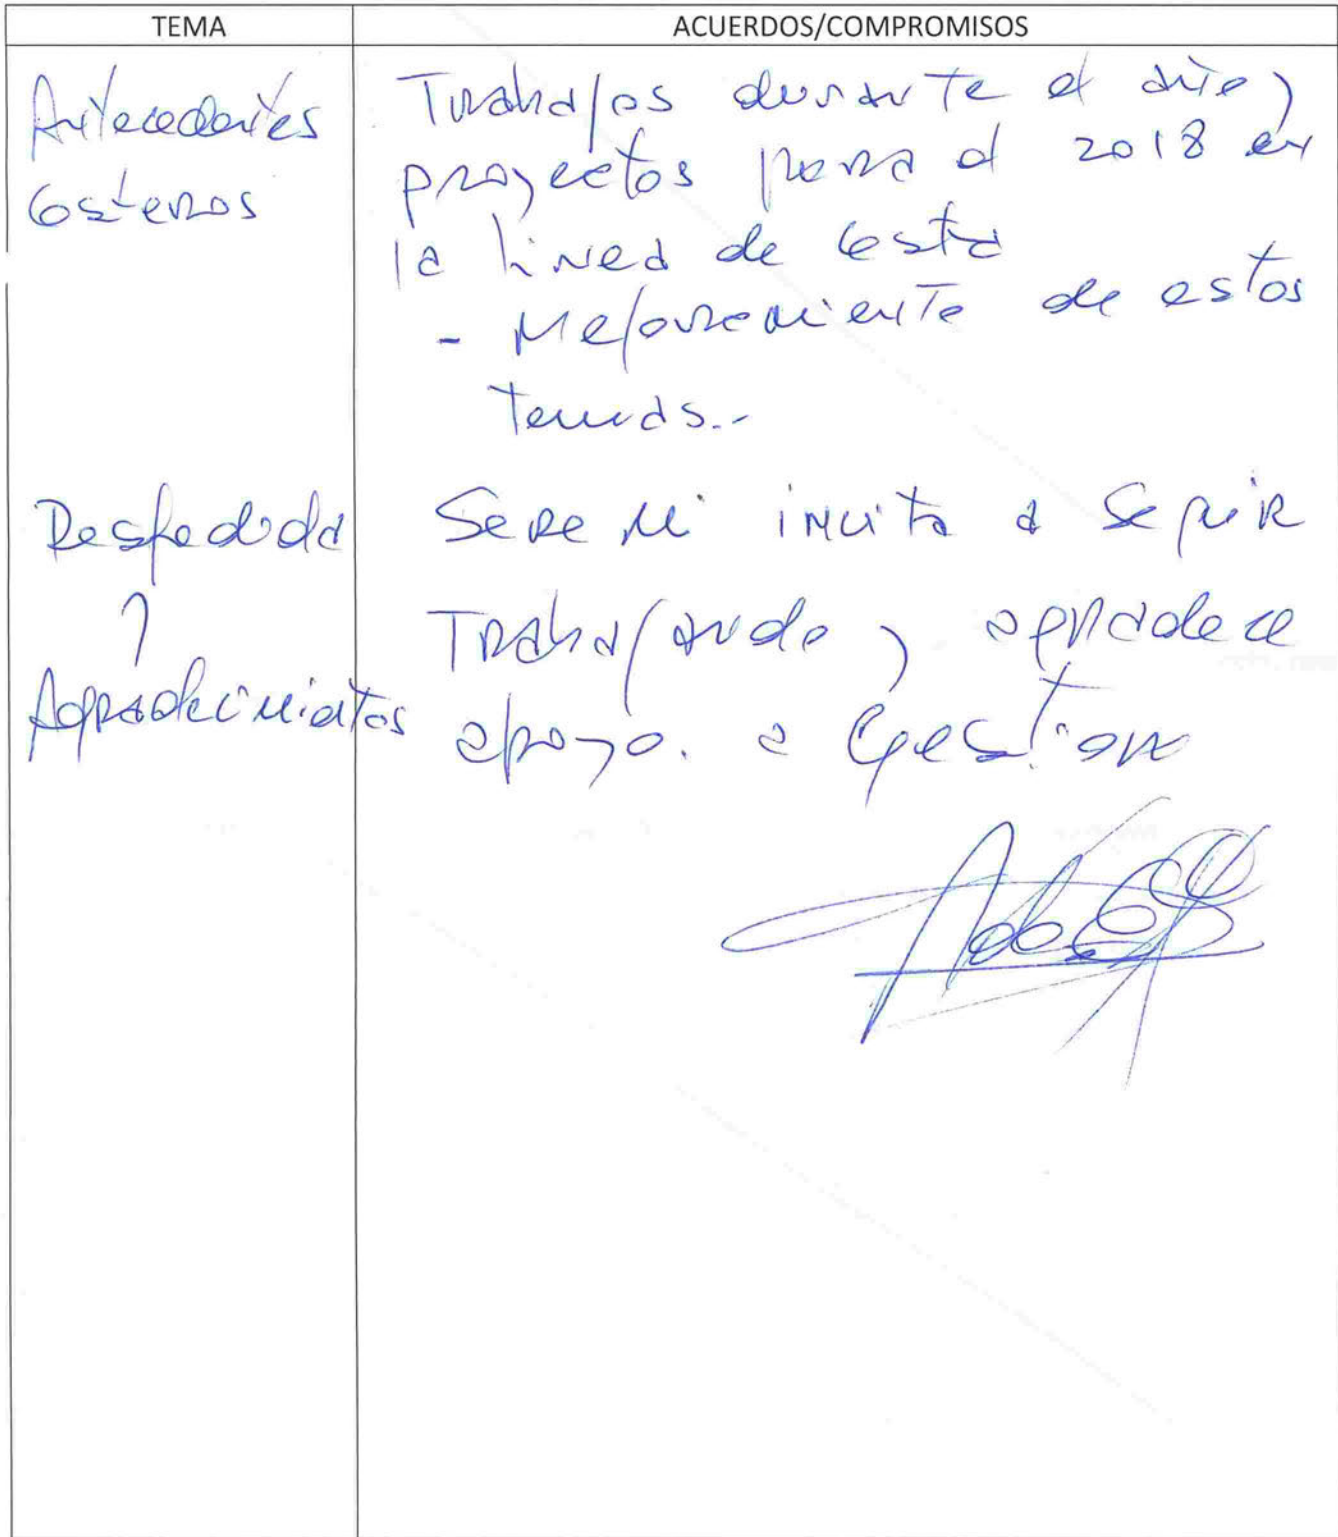 TEMA
ACUERDOS/COMPROMISOS
Antecedentes
Costeros
Trabajos durante el año y
proyectos para el 2018 en
la línea de costa
- Mejoramiento de estos
temas.-
Despedida
y
Agradecimientos
Seremi invita a seguir
Trabajando y agradece
apoyo. a Gestion